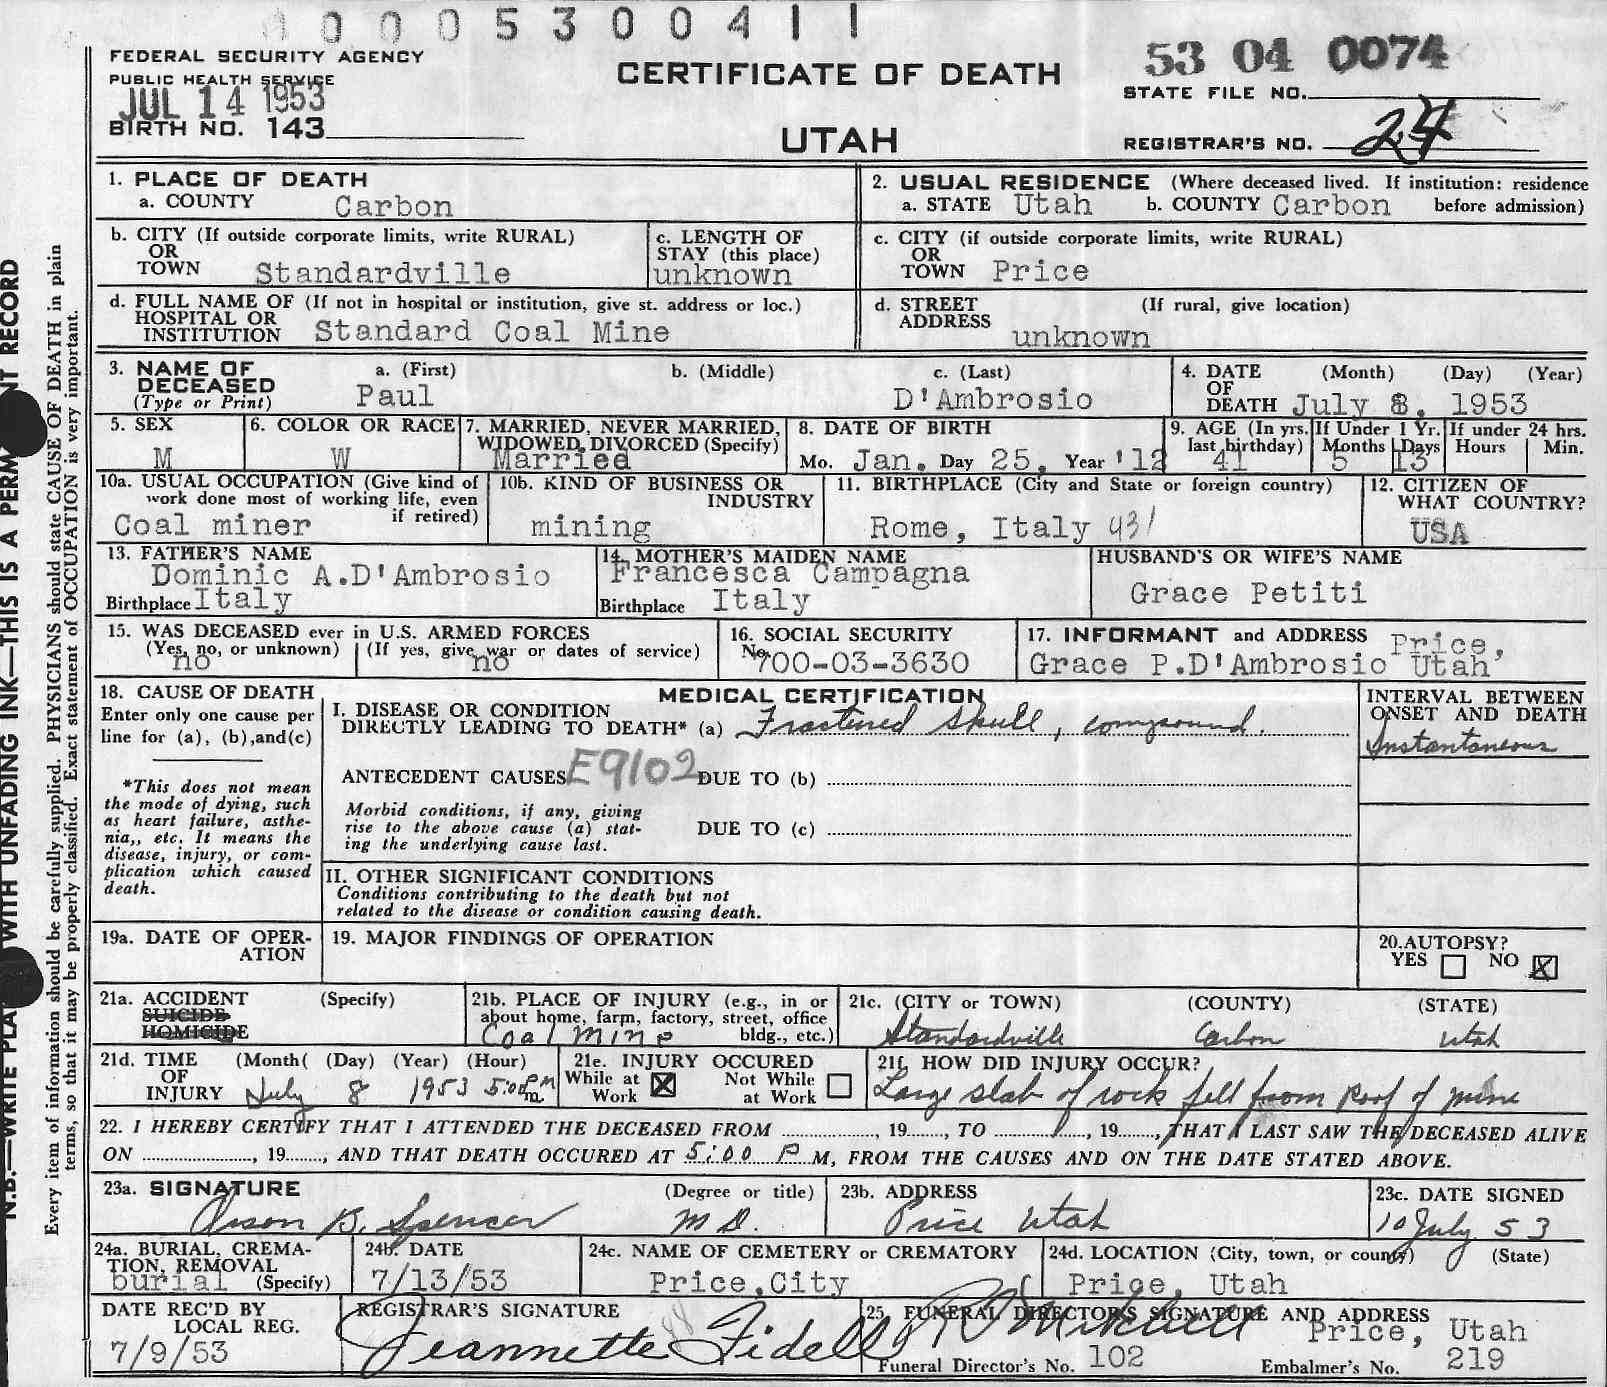 0 0 0 5 3 0 0 4 1 1
FEDERAL SECURITY AGENCY
PUBLIC HEALTH SERVICE
JUL 14 1953
BIRTH NO. 143
CERTIFICATE OF DEATH
UTAH
53 04 0074
STATE FILE NO.
REGISTRAR'S NO. 24
1. PLACE OF DEATH
a. COUNTY Carbon
2. USUAL RESIDENCE (Where deceased lived. If institution: residence
a. STATE Utah b. COUNTY Carbon before admission)
b. CITY (If outside corporate limits, write RURAL)
OR
TOWN Standardville
c. LENGTH OF
STAY (this place)
unknown
c. CITY (if outside corporate limits, write RURAL)
OR
TOWN Price
d. FULL NAME OF (If not in hospital or institution, give st. address or loc.)
HOSPITAL OR
INSTITUTION Standard Coal Mine
d. STREET (If rural, give location)
ADDRESS
unknown
3. NAME OF a. (First) b. (Middle) c. (Last)
DECEASED Paul D'Ambrosio
(Type or Print)
4. DATE (Month) (Day) (Year)
OF
DEATH July 8, 1953
5. SEX
M
6. COLOR OR RACE
W
7. MARRIED, NEVER MARRIED,
WIDOWED, DIVORCED (Specify)
Married
8. DATE OF BIRTH
Mo. Jan. Day 25, Year '12
9. AGE (In yrs.
last birthday)
41
If Under 1 Yr.
Months Days
5 13
If under 24 hrs.
Hours Min.
10a. USUAL OCCUPATION (Give kind of
work done most of working life, even
if retired)
Coal miner
10b. KIND OF BUSINESS OR
INDUSTRY
mining
11. BIRTHPLACE (City and State or foreign country)
Rome, Italy 431
12. CITIZEN OF
WHAT COUNTRY?
USA
13. FATHER'S NAME
Dominic A.D'Ambrosio
Birthplace Italy
14. MOTHER'S MAIDEN NAME
Francesca Campagna
Birthplace Italy
HUSBAND'S OR WIFE'S NAME
Grace Petiti
15. WAS DECEASED ever in U.S. ARMED FORCES
(Yes, no, or unknown) (If yes, give war or dates of service)
no no
16. SOCIAL SECURITY
No. 700-03-3630
17. INFORMANT and ADDRESS Price,
Grace P.D'Ambrosio Utah
18. CAUSE OF DEATH
Enter only one cause per
line for (a), (b), and (c)
*This does not mean
the mode of dying, such
as heart failure, asthe-
nia,, etc. It means the
disease, injury, or com-
plication which caused
death.
MEDICAL CERTIFICATION
I. DISEASE OR CONDITION
DIRECTLY LEADING TO DEATH* (a) Fractured skull, compound.
ANTECEDENT CAUSES E9102 DUE TO (b)
Morbid conditions, if any, giving
rise to the above cause (a) stat-
ing the underlying cause last.
DUE TO (c)
INTERVAL BETWEEN
ONSET AND DEATH
Instantaneous
II. OTHER SIGNIFICANT CONDITIONS
Conditions contributing to the death but not
related to the disease or condition causing death.
19a. DATE OF OPER-
ATION
19. MAJOR FINDINGS OF OPERATION
20. AUTOPSY?
YES NO X
21a. ACCIDENT (Specify)
SUICIDE
HOMICIDE
21b. PLACE OF INJURY (e.g., in or
about home, farm, factory, street, office
bldg., etc.)
Coal Mine
21c. (CITY or TOWN) (COUNTY) (STATE)
Standardville Carbon Utah
21d. TIME (Month( (Day) (Year) (Hour)
OF
INJURY July 8 1953 5:00 PM m.
21e. INJURY OCCURED
While at Work X Not While at Work
21f. HOW DID INJURY OCCUR?
Large slab of rock fell from Roof of mine
22. I HEREBY CERTIFY THAT I ATTENDED THE DECEASED FROM ............, 19......, TO ............, 19......, THAT I LAST SAW THE DECEASED ALIVE
ON ............, 19......, AND THAT DEATH OCCURED AT 5:00 P M, FROM THE CAUSES AND ON THE DATE STATED ABOVE.
23a. SIGNATURE (Degree or title)
Orson B. Spencer M.D.
23b. ADDRESS
Price Utah
23c. DATE SIGNED
10 July 53
24a. BURIAL, CREMA-
TION, REMOVAL
burial (Specify)
24b. DATE
7/13/53
24c. NAME OF CEMETERY or CREMATORY
Price,City
24d. LOCATION (City, town, or county) (State)
Price, Utah
DATE REC'D BY
LOCAL REG.
7/9/53
REGISTRAR'S SIGNATURE
Jeannette Fidell
25. FUNERAL DIRECTOR'S SIGNATURE AND ADDRESS
Mitchell Price, Utah
Funeral Director's No. 102 Embalmer's No. 219
Every item of information should be carefully supplied. PHYSICIANS should state CAUSE OF DEATH in plain
terms, so that it may be properly classified. Exact statement of OCCUPATION is very important.
N.B.—WRITE WITH UNFADING INK—THIS IS A RECORD